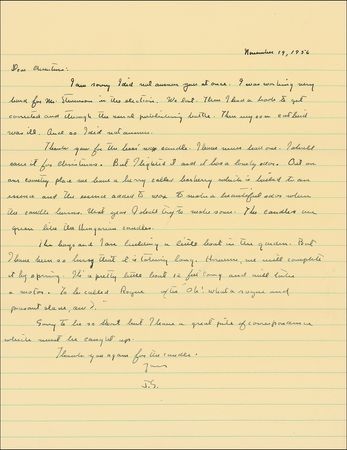 November 19, 1956
Dear Christine:
I am sorry I did not answer you at once. I was working very
hard for Mr. Stevenson in the election. We lost. Then I had a book to get
corrected and through the usual publishing battle. Then my son
was ill. And so I did not answer.
Thank you for the bees wax candle. I have not lit one. I should
save it for Christmas. But I lighted it and it has a lovely odor. Out on
our country place we have a berry called barberry which is boiled to an
essence and the essence added to wax to make a beautiful odor when
the candle burns. Next year I shall try to make some. The candles are
green like the Hungarian candles.
The boys and I are building a little boat in the garden. But
I have been so busy that it is taking long. However, we will complete
it by spring. It's a pretty little boat feet long and will take
a motor. To be called Rogue after "Oh! what a rogue and
peasant slave, am I."
Sorry to be so short but I have a great pile of correspondence
which must be caught up.
Thank you again for the candle.
Yours
J.S.